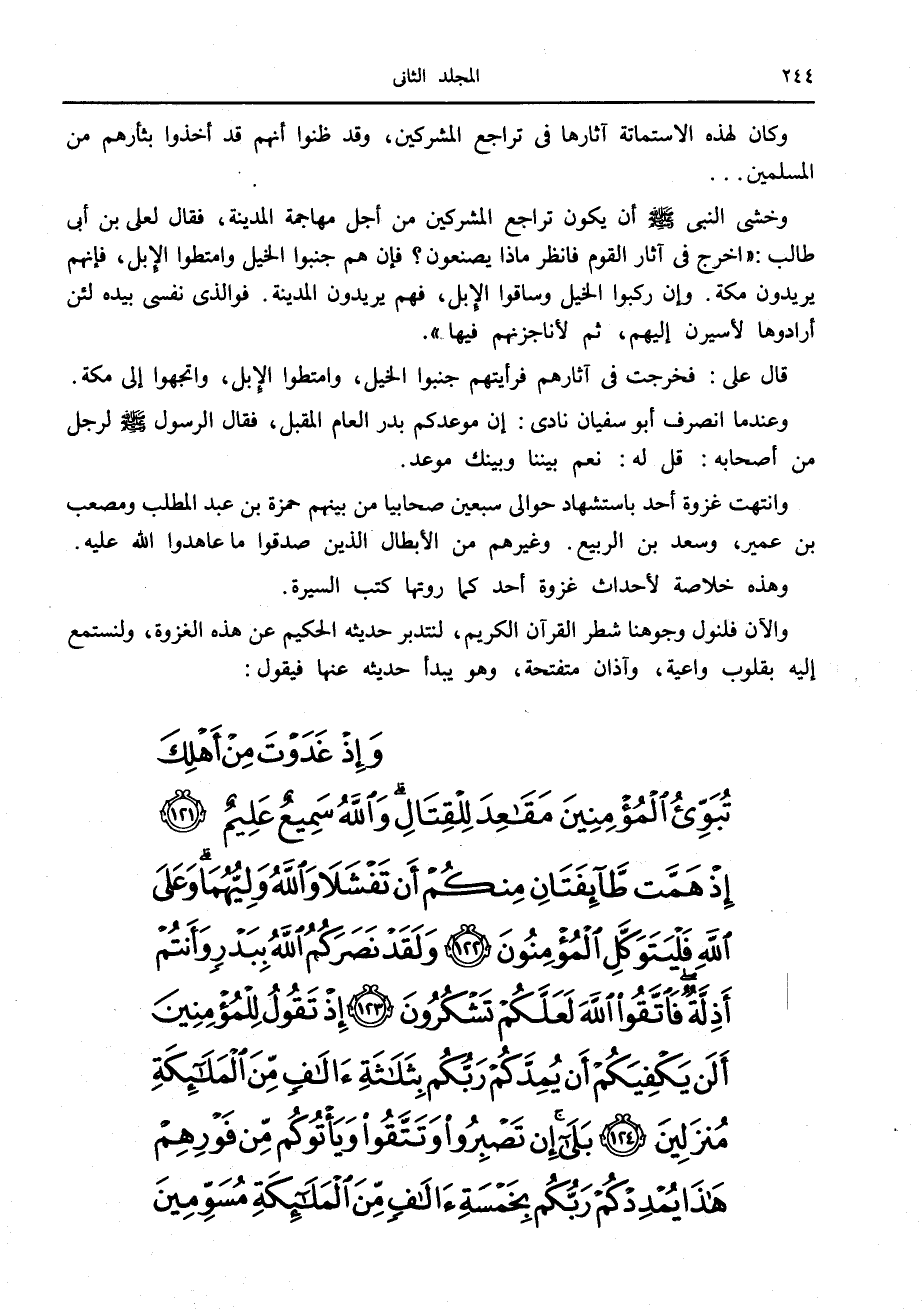 ٢٤٤ المجلد الثانى
وكان لهذه الاستماتة آثارها فى تراجع المشركين، وقد ظنوا أنهم قد أخذوا بثأرهم من
المسلمين...
وخشى النبى ﷺ أن يكون تراجع المشركين من أجل مهاجمة المدينة، فقال لعلى بن أبى
طالب :«اخرج فى آثار القوم فانظر ماذا يصنعون؟ فإن هم جنبوا الخيل وامتطوا الإبل، فإنهم
يريدون مكة. وإن ركبوا الخيل وساقوا الإبل، فهم يريدون المدينة. فوالذى نفسى بيده لئن
أرادوها لأسيرن إليهم، ثم لأناجزنهم فيها».
قال على: فخرجت فى آثارهم فرأيتهم جنبوا الخيل، وامتطوا الإبل، واتجهوا إلى مكة.
وعندما انصرف أبو سفيان نادى: إن موعدكم بدر العام المقبل، فقال الرسول ﷺ لرجل
من أصحابه: قل له: نعم بيننا وبينك موعد.
وانتهت غزوة أحد باستشهاد حوالى سبعين صحابيا من بينهم حمزة بن عبد المطلب ومصعب
بن عمير، وسعد بن الربيع. وغيرهم من الأبطال الذين صدقوا ما عاهدوا الله عليه.
وهذه خلاصة لأحداث غزوة أحد كما روتها كتب السيرة.
والآن فلنول وجوهنا شطر القرآن الكريم، لنتدبر حديثه الحكيم عن هذه الغزوة، ولنستمع
إليه بقلوب واعية، وآذان متفتحة، وهو يبدأ حديثه عنها فيقول:
وَإِذْ غَدَوْتَ مِنْ أَهْلِكَ
تُبَوِّئُ ٱلْمُؤْمِنِينَ مَقَٰعِدَ لِلْقِتَالِ ۗ وَٱللَّهُ سَمِيعٌ عَلِيمٌ ١٢١
إِذْ هَمَّت طَّآئِفَتَانِ مِنكُمْ أَن تَفْشَلَا وَٱللَّهُ وَلِيُّهُمَا ۗ وَعَلَى
ٱللَّهِ فَلْيَتَوَكَّلِ ٱلْمُؤْمِنُونَ ١٢٢ وَلَقَدْ نَصَرَكُمُ ٱللَّهُ بِبَدْرٍ وَأَنتُمْ
أَذِلَّةٌ ۖ فَٱتَّقُوا۟ ٱللَّهَ لَعَلَّكُمْ تَشْكُرُونَ ١٢٣ إِذْ تَقُولُ لِلْمُؤْمِنِينَ
أَلَن يَكْفِيَكُمْ أَن يُمِدَّكُمْ رَبُّكُم بِثَلَٰثَةِ ءَالَٰفٍ مِّنَ ٱلْمَلَٰٓئِكَةِ
مُنزَلِينَ ١٢٤ بَلَىٰٓ ۚ إِن تَصْبِرُوا۟ وَتَتَّقُوا۟ وَيَأْتُوكُم مِّن فَوْرِهِمْ
هَٰذَا يُمْدِدْكُمْ رَبُّكُم بِخَمْسَةِ ءَالَٰفٍ مِّنَ ٱلْمَلَٰٓئِكَةِ مُسَوِّمِينَ